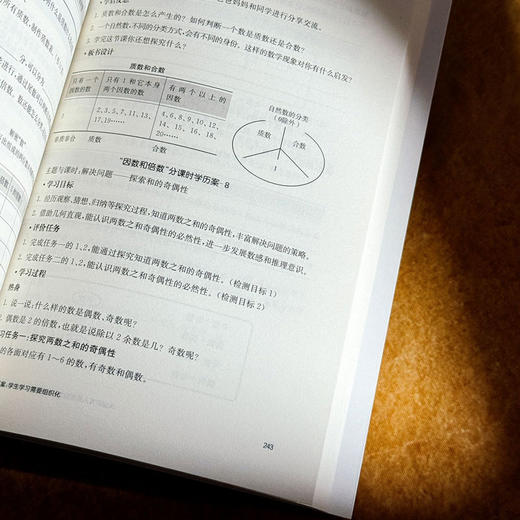 爸妈妈和同学进行分享交流。
1. 质数和合数是怎么产生的？如何判断一个数是质数还是合数？
2. 一个自然数,不同的分类方式,会有不同的身份。这样的数学现象对你有什么启发？
3. 学完这节课你还想探究什么？
• 板书设计
质数和合数
只有一个因数的数
只有1和它本身两个因数的数
有两个以上的因数
1
2、3、5、7、11、13、17、19……
4、6、8、9、10、12、14、15、16、18、20……
非质非合 质数 合数
自然数的分类
(0除外)
质数
合数
1
“因数和倍数”分课时学历案-8
主题与课时:解决问题——探索和的奇偶性
• 学习目标
1. 经历观察、猜想、归纳等探究过程,知道两数之和的奇偶性,丰富解决问题的策略。
2. 借助几何直观,能认识两数之和奇偶性的必然性,进一步发展数感和推理意识。
• 评价任务
1. 完成任务一的1、2,能通过探究知道两数之和的奇偶性。(检测目标1)
2. 完成任务二的1、2,能认识两数之和奇偶性的必然性。(检测目标2)
• 学习过程
热身
1. 说一说:什么样的数是偶数、奇数呢？
2. 偶数是2的倍数,也就是说除以2余数是几？奇数呢？
习任务一:探究两数之和的奇偶性
的各面对应有1～6的数,有奇数和偶数。
案:学生学习需要组织化
243